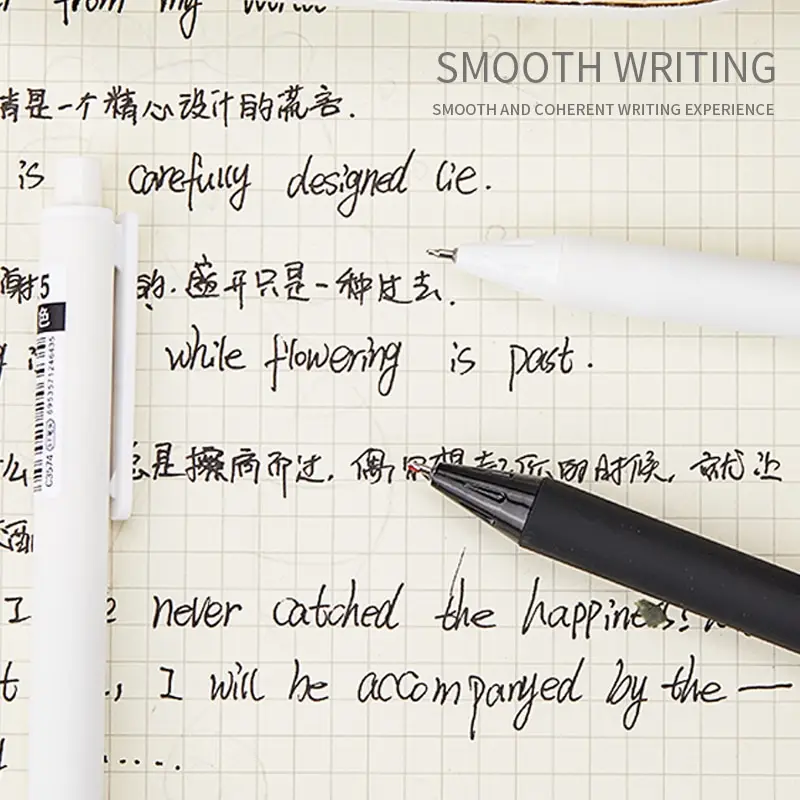 from my
SMOOTH WRITING
SMOOTH AND COHERENT WRITING EXPERIENCE
是一个精心设计的谎言.
is carefully designed lie.
谢 的. 盛开只是一种过去.
while flowering is past.
5
色
6953571246435
G3574
总是擦肩而过, 偶 想起 的时候, 就让
I never catched the happiness
I will be accompanyed by the —
.....